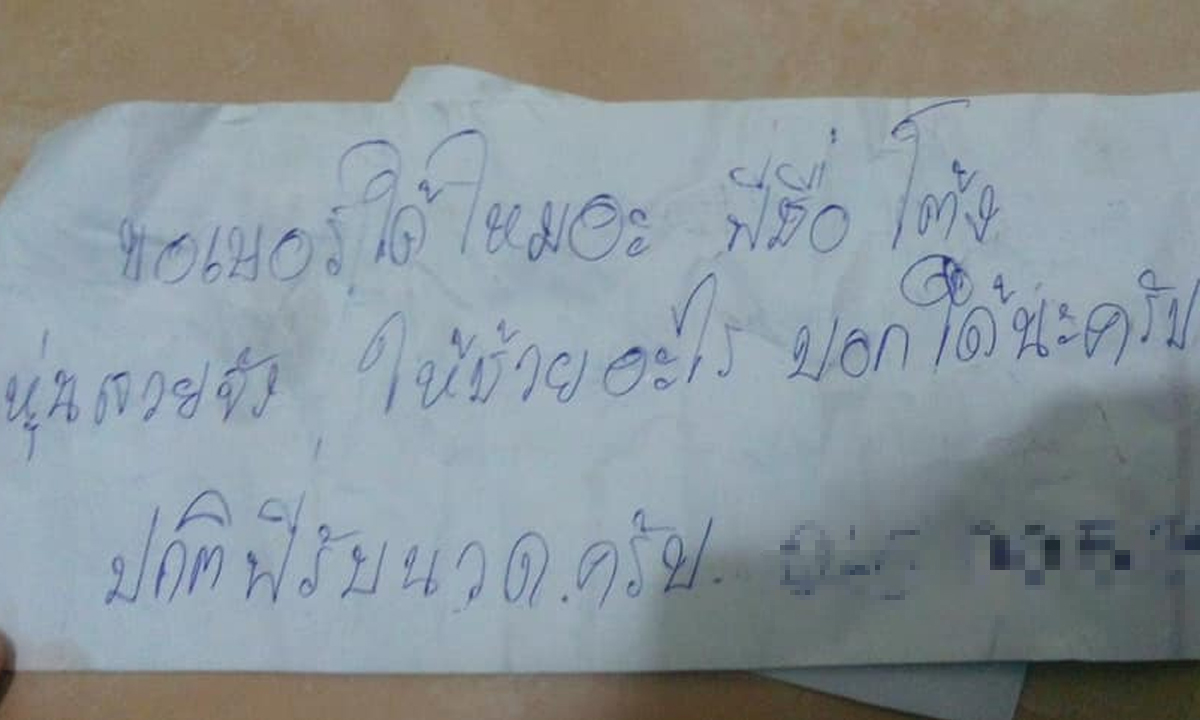 ขอเบอร์ได้ไหมอะ พี่ชื่อ โต้ง
หุ่นสวยจัง ให้ช้วยอะไร บอกได้น่ะครับ
ปกติพี่รับนวด.ครับ.